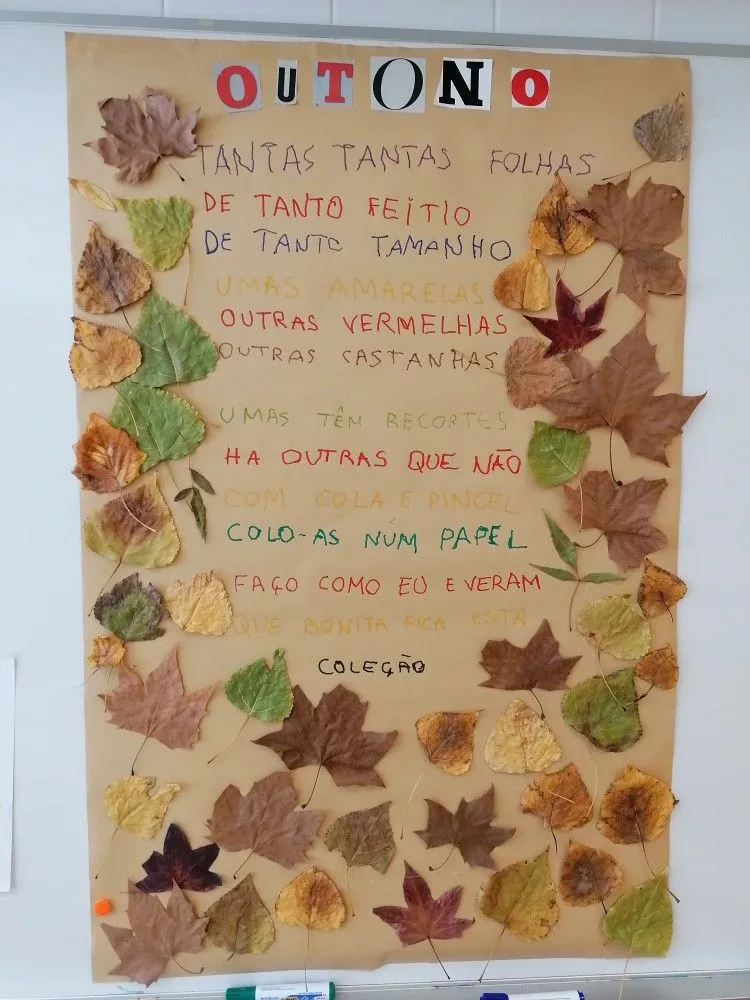 OUTONO
TANTAS TANTAS FOLHAS
DE TANTO FEITIO
DE TANTO TAMANHO
UMAS AMARELAS
OUTRAS VERMELHAS
OUTRAS CASTANHAS
UMAS TÊM RECORTES
HA OUTRAS QUE NÃO
COM COLA E PINCEL
COLO-AS NUM PAPEL
FAÇO COMO EU E VERAM
QUE BONITA FICA ESTA
COLEÇÃO